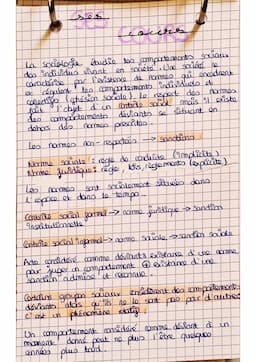 Les
cours
La sociologie étudie les comportements sociaux
des individus vivant en société. Une société se
caractérise par l'existence de normes qui encadrent
et régulent les comportements individuels et
collectifs (cohésion sociale). Le respect des normes
fait l'objet d'un contrôle social mais il existe
des comportements déviants se situant en
dehors des normes prescrites.
Les normes non-respectées → sanctions
Norme sociale : règle de conduite (implicite)
Norme juridique : règle, lois, règlements (explicite)
Les normes sont socialement situées dans
l'espace et dans le temps
Contrôle social formel → norme juridique → sanction
institutionnelle
Contrôle social informel → norme sociale → sanction sociale
Acte considéré comme déviant : existence d'une norme
pour juger un comportement ⊕ existence d'une
sanction admise et reconnue.
Certains groupes sociaux des comportements
déviants alors qu'ils ne le sont pas pour d'autres
c'est un phénomène
Un comportement considéré comme déviant à un
moment donné peut ne plus l'être quelques
années plus tard.